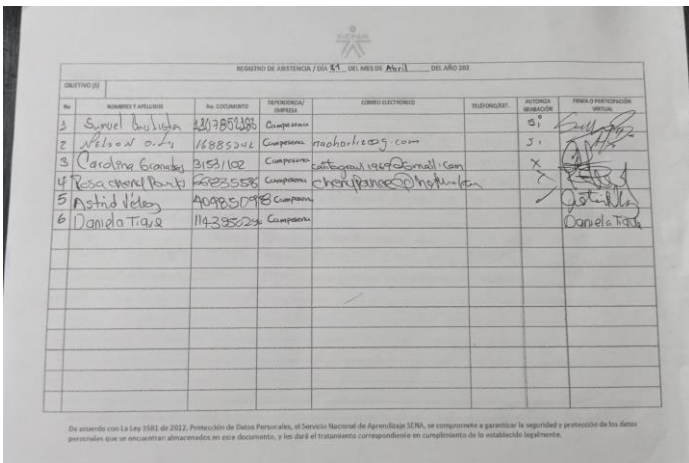 SENA
REGISTRO DE ASISTENCIA / DÍA 21 DEL MES DE Abril DEL AÑO 202
OBJETIVO (S)
No NOMBRES Y APELLIDOS No. DOCUMENTO DEPENDENCIA/ EMPRESA CORREO ELECTRÓNICO TELÉFONO/EXT. AUTORIZA GRABACIÓN FIRMA O PARTICIPACIÓN VIRTUAL
1 Samuel Bautista Campesena si
2 Nelson 16885242 Campesena si
3 Carolina Granados 31531102 Campesena X
4 Rosa 66835586 Campesena
5 Astrid Vélez Campesena
6 Daniela Tique Campesena Daniela Tique
De acuerdo con La Ley 1581 de 2012. Protección de Datos Personales, el Servicio Nacional de Aprendizaje SENA, se compromete a garantizar la seguridad y protección de los datos
personales que se encuentran almacenados en este documento, y les dará el tratamiento correspondiente en cumplimiento de lo establecido legalmente.